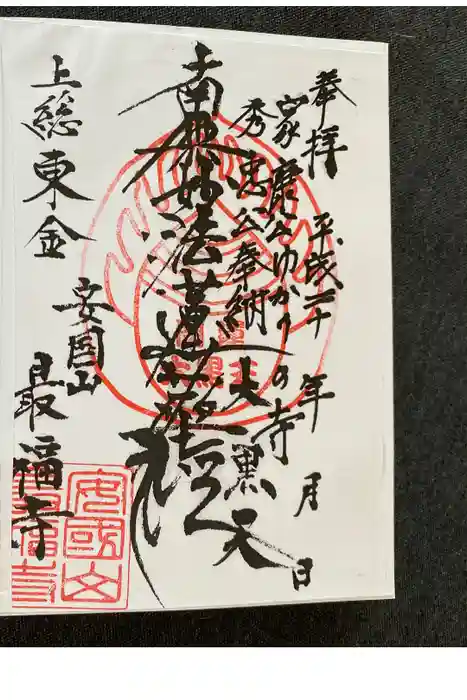 奉拝 平成二十 年 月 日
家康公ゆかりの寺
秀忠公奉納大黒天
南無妙法蓮華経
上総東金
安国山
最福寺
安國山
最福寺